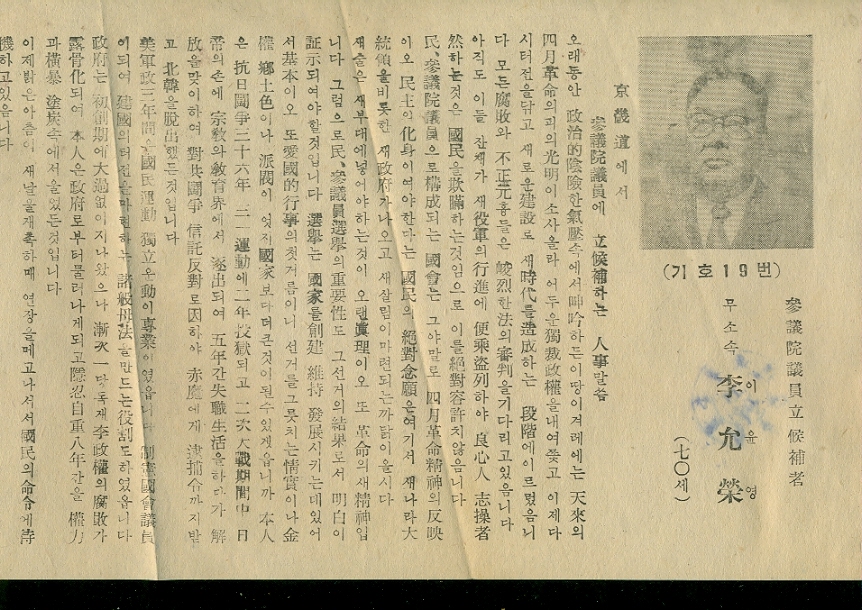 (기호19번)
參議院議員立候補者
무소속 李允榮
이윤영
(七○세)
京畿道에서
參議院議員에 立候補하는 人事말씀
오래동안 政治的陰險한氣壓속에서呻吟하든이땅이겨레에는 天來의
四月革命의피의光明이소사올라 어두운獨裁政權을내여쫓고 이제다
시터전을닦고 새로운建設로 새時代를造成하는 段階에이르렀읍니
다 모든腐敗와 不正元兇들은 峻烈한法의審判을기다리고있읍니다
아직도 이들 잔재가 새役軍의行進에 便乘盜列하야 良心人 志操者
然하는것은 國民을欺瞞하는것임으로 이를絕對容許치않읍니다
民、參議院議員으로構成되는 國會는 그야말로 四月革命精神의反映
이오 民主의化身이여야한다는 國民의 絕對念願은여기서 새나라大
統領을비롯한 새政府가나오고 새살림이마련되는까닭이올시다
새술은 새부대에넣어야하는것이 오랜眞理이오 또 革命의새精神입
니다 그럼으로民、參議員選擧의重要性도 그선거의結果로서 明白이
証示되여야할것입니다 選擧는 國家를創建 維持 發展시키는데있어
서基本이오 또愛國的行事의첫거름이니 선거를그릇치는情實이나金
權 鄕土色이나 派閥이 엇지國家보다더큰것이될수있겠읍니까 本人
은 抗日鬪爭三十六年 三一運動에二年投獄되고 二次大戰期間中 日
帝의손에 宗敎와敎育界에서 逐出되여 五年간失職生活을하다가 解
放을맞이하여 對共鬪爭 信託反對로因하야 赤魔에게 逮捕令까지받
고 北韓을脫出했든것입니다
美軍政三年間은國民運動 獨立운動이專業이였읍니다 制憲國會議員
이되여 建國의터전을마련하는 諸般母法을만드는役割도하였읍니다
政府는 初創期에大過없이지나왔으나 漸次一당독재李政權의腐敗가
露骨化되여 本人은政府로부터물러나게되고隱忍自重八年간을 權力
과橫暴 塗炭속에서울었든것입니다
이제밝은아츰이 새날을재촉하매 연장을메고나서서國民의命令에待
機하고있읍니다